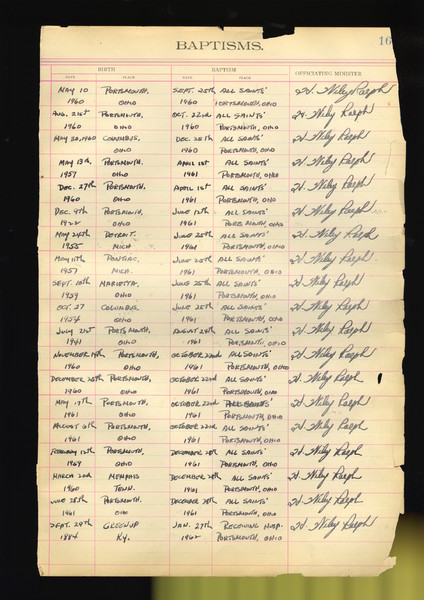 16
BAPTISMS.
BIRTH BAPTISM OFFICIATING MINISTER
DATE PLACE DATE PLACE
MAY 10 PORTSMOUTH, SEPT. 25th ALL SAINTS' H. Wiley Ralph
1960 OHIO 1960 PORTSMOUTH, OHIO
AUG. 21st PORTSMOUTH, OCT. 22nd ALL SAINTS' H. Wiley Ralph
1960 OHIO 1960 PORTSMOUTH, OHIO
MAY 30, 1960 COLUMBUS, DEC. 25th ALL SAINTS' H. Wiley Ralph
OHIO PORTSMOUTH, OHIO
MAY 13th, PORTSMOUTH, APRIL 1st ALL SAINTS' H. Wiley Ralph
1957 OHIO 1961 PORTSMOUTH, OHIO
DEC. 27th PORTSMOUTH, APRIL 1st ALL SAINTS' H. Wiley Ralph
1960 OHIO 1961 PORTSMOUTH, OHIO
DEC. 9th PORTSMOUTH, JUNE ALL SAINTS' H. Wiley Ralph
OHIO 1961 PORTSMOUTH, OHIO
MAY 24th DETROIT, JUNE 25th ALL SAINTS' H. Wiley Ralph
1955 MICH 1961 PORTSMOUTH, OHIO
MAY 11th PONTIAC, JUNE 25th ALL SAINTS' H. Wiley Ralph
1957 MICH. 1961 PORTSMOUTH, OHIO
SEPT. 10th MARIETTA, JUNE 25th ALL SAINTS' H. Wiley Ralph
1959 OHIO 1961 PORTSMOUTH, OHIO
OCT. 27 COLUMBUS, JUNE 25th ALL SAINTS' H. Wiley Ralph
OHIO 1961 PORTSMOUTH, OHIO
JULY 21st PORTSMOUTH, AUGUST 24th ALL SAINTS' H. Wiley Ralph
1941 OHIO 1961 PORTSMOUTH, OHIO
NOVEMBER 19th PORTSMOUTH, OCTOBER 22nd ALL SAINTS' H. Wiley Ralph
1960 OHIO 1961 PORTSMOUTH, OHIO
DECEMBER 26th PORTSMOUTH, OCTOBER 22nd ALL SAINTS' H. Wiley Ralph
1960 OHIO 1961 PORTSMOUTH, OHIO
MAY 17th PORTSMOUTH, OCTOBER 22nd ALL SAINTS' H. Wiley Ralph
1961 OHIO 1961 PORTSMOUTH, OHIO
AUGUST 6th PORTSMOUTH, OCTOBER 22nd ALL SAINTS' H. Wiley Ralph
1961 OHIO 1961 PORTSMOUTH, OHIO
FEBRUARY 12th PORTSMOUTH, DECEMBER 24th ALL SAINTS' H. Wiley Ralph
OHIO 1961 PORTSMOUTH, OHIO
MARCH 22nd MEMPHIS DECEMBER 24th ALL SAINTS' H. Wiley Ralph
1960 TENN. 1961 PORTSMOUTH, OHIO
JUNE 28th PORTSMOUTH. DECEMBER 24th ALL SAINTS' H. Wiley Ralph
1961 OHIO 1961 PORTSMOUTH, OHIO
SEPT. 29th GREENUP JAN. 27th RECEIVING HOSP. H. Wiley Ralph
1884 KY. 1962 PORTSMOUTH, OHIO